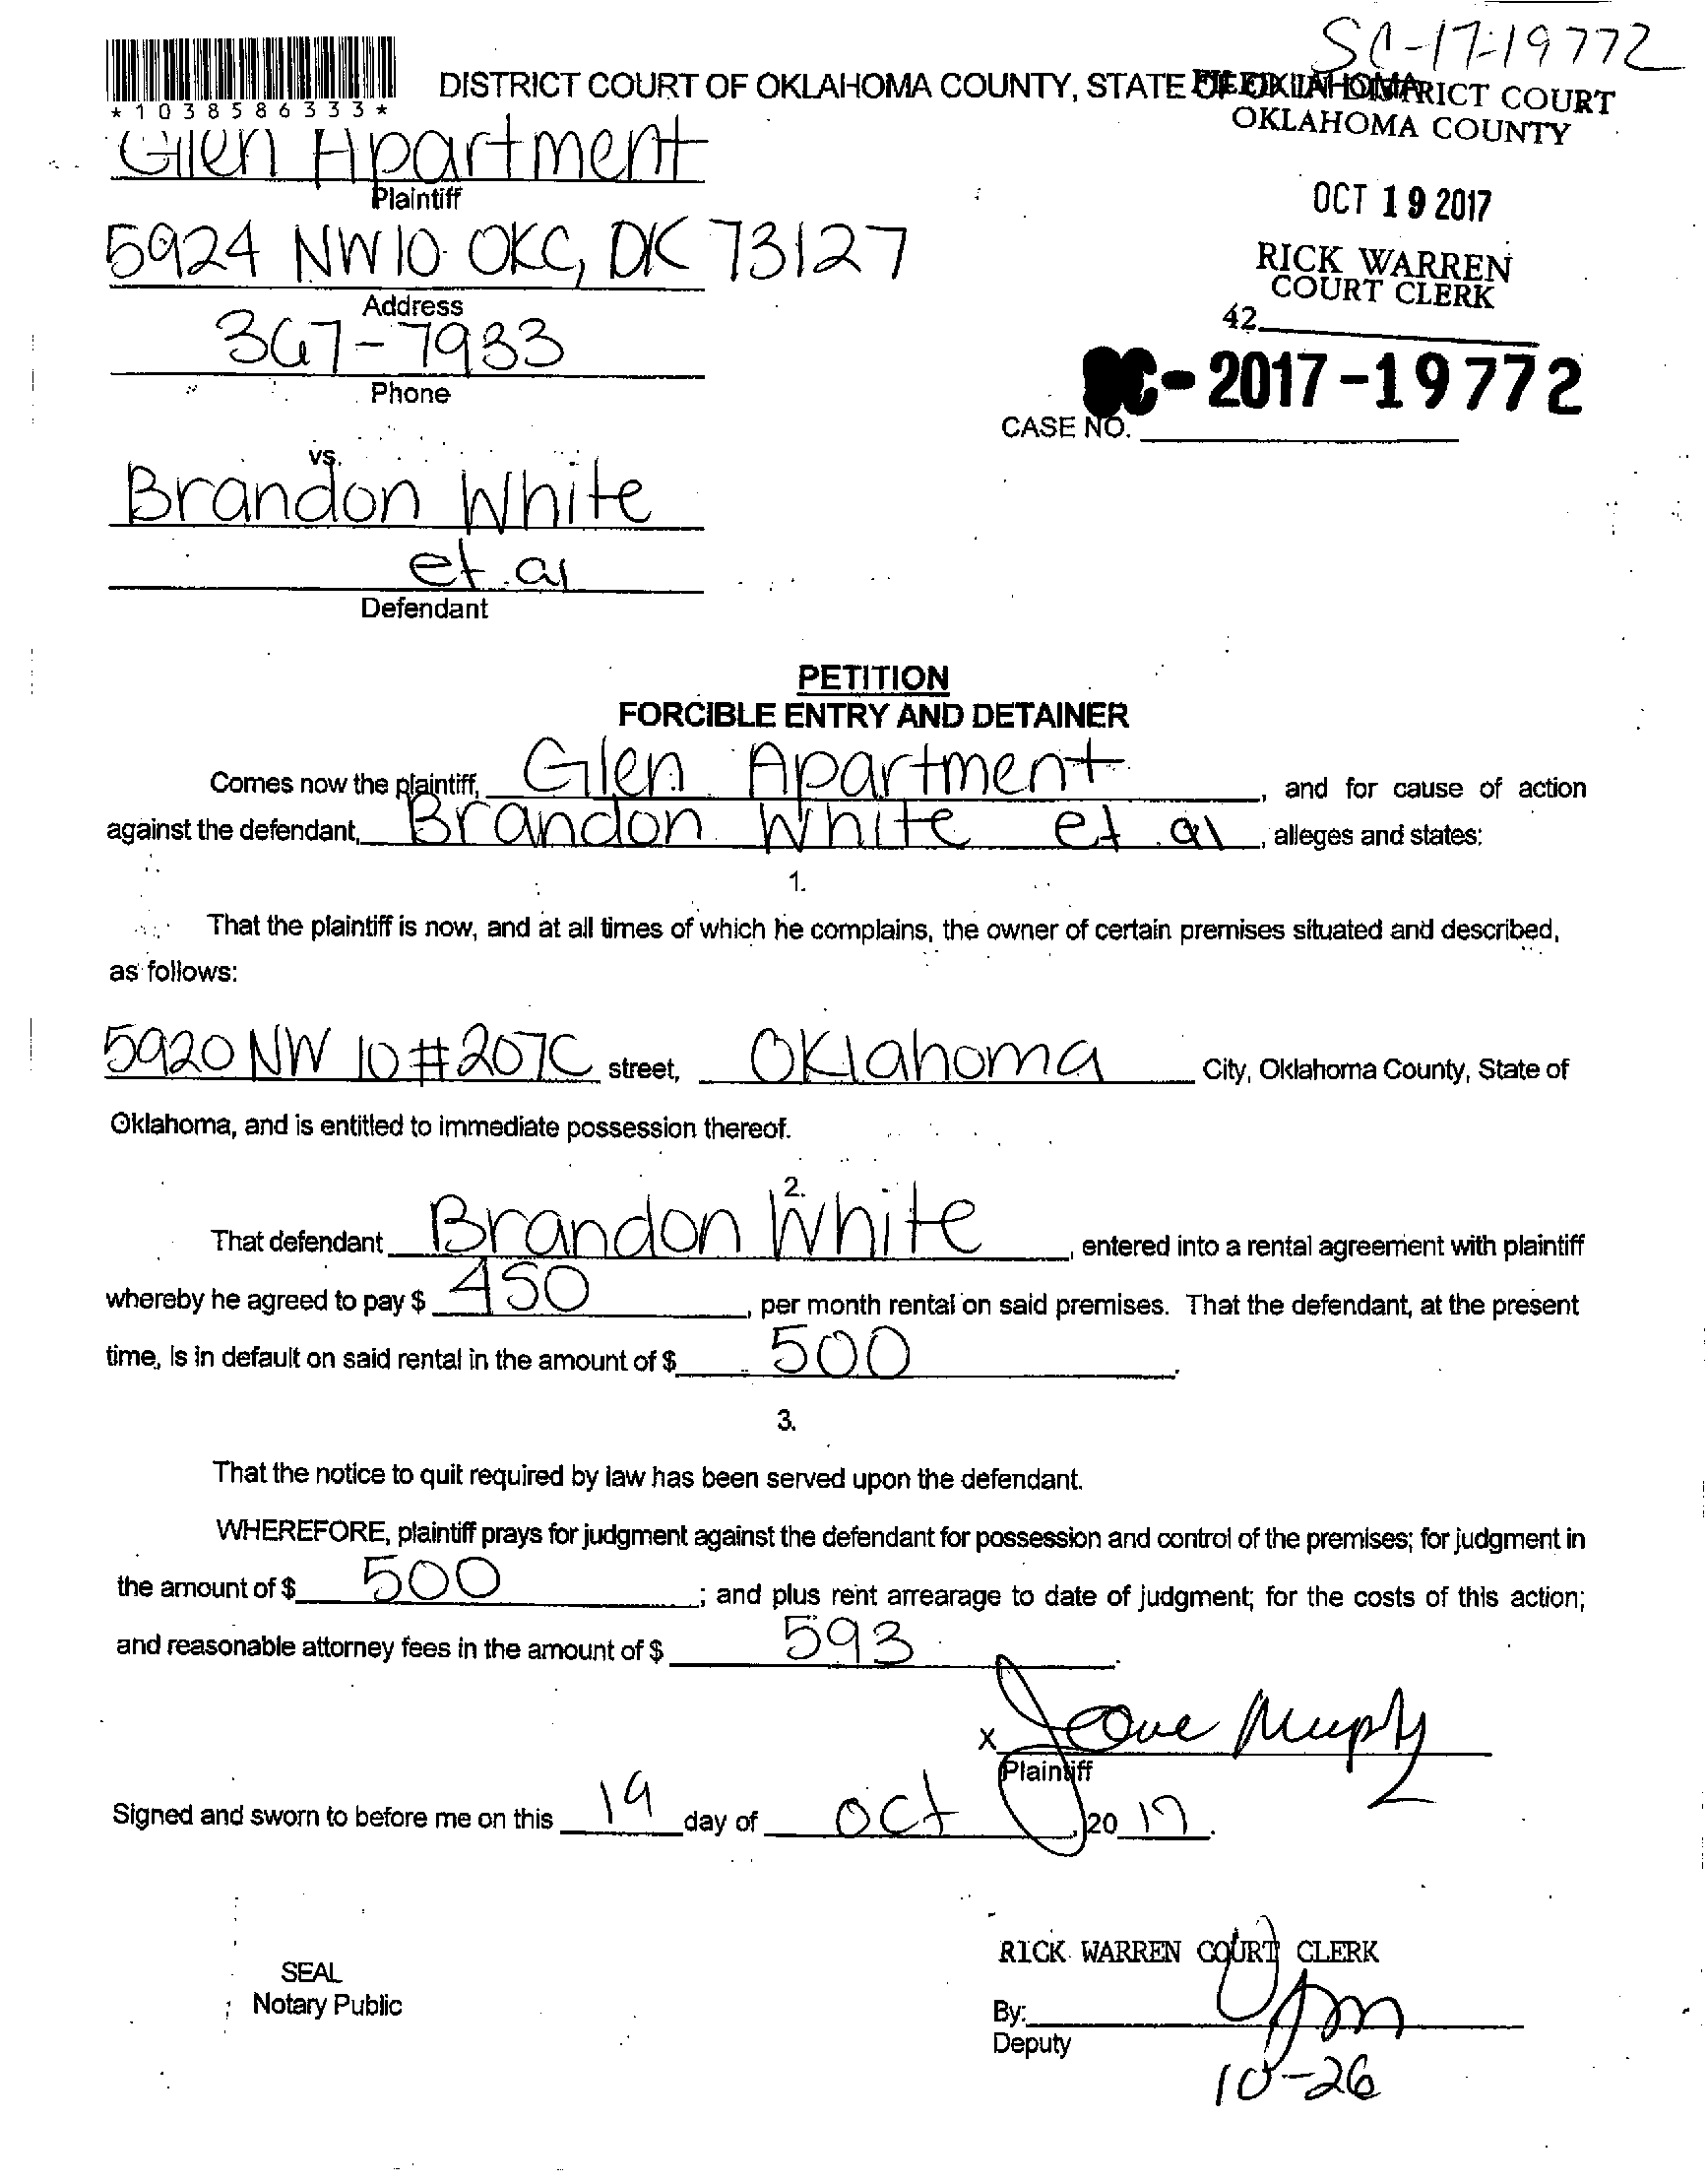 SC-17-19772
*1038586333*
DISTRICT COURT OF OKLAHOMA COUNTY, STATE OF OKLAHOMA
FILED IN DISTRICT COURT
OKLAHOMA COUNTY
Glen Apartment
Plaintiff
OCT 19 2017
5924 NW 10 OKC, OK 73127
RICK WARREN
COURT CLERK
Address
42
367-7933
Phone
SC-2017-19772
CASE NO.
vs.
Brandon White
et.al
Defendant
PETITION
FORCIBLE ENTRY AND DETAINER
Comes now the plaintiff, Glen Apartment, and for cause of action
against the defendant, Brandon White et.al, alleges and states:
1.
That the plaintiff is now, and at all times of which he complains, the owner of certain premises situated and described,
as follows:
5920 NW 10 #207C street, Oklahoma City, Oklahoma County, State of
Oklahoma, and is entitled to immediate possession thereof.
2.
That defendant Brandon White, entered into a rental agreement with plaintiff
whereby he agreed to pay $ 450, per month rental on said premises. That the defendant, at the present
time, is in default on said rental in the amount of $ 500.
3.
That the notice to quit required by law has been served upon the defendant.
WHEREFORE, plaintiff prays for judgment against the defendant for possession and control of the premises; for judgment in
the amount of $ 500; and plus rent arrearage to date of judgment; for the costs of this action;
and reasonable attorney fees in the amount of $ 593.
X Murphy
Plaintiff
Signed and sworn to before me on this 19 day of Oct, 2017.
RICK WARREN COURT CLERK
SEAL
Notary Public
By:
Deputy
10-26